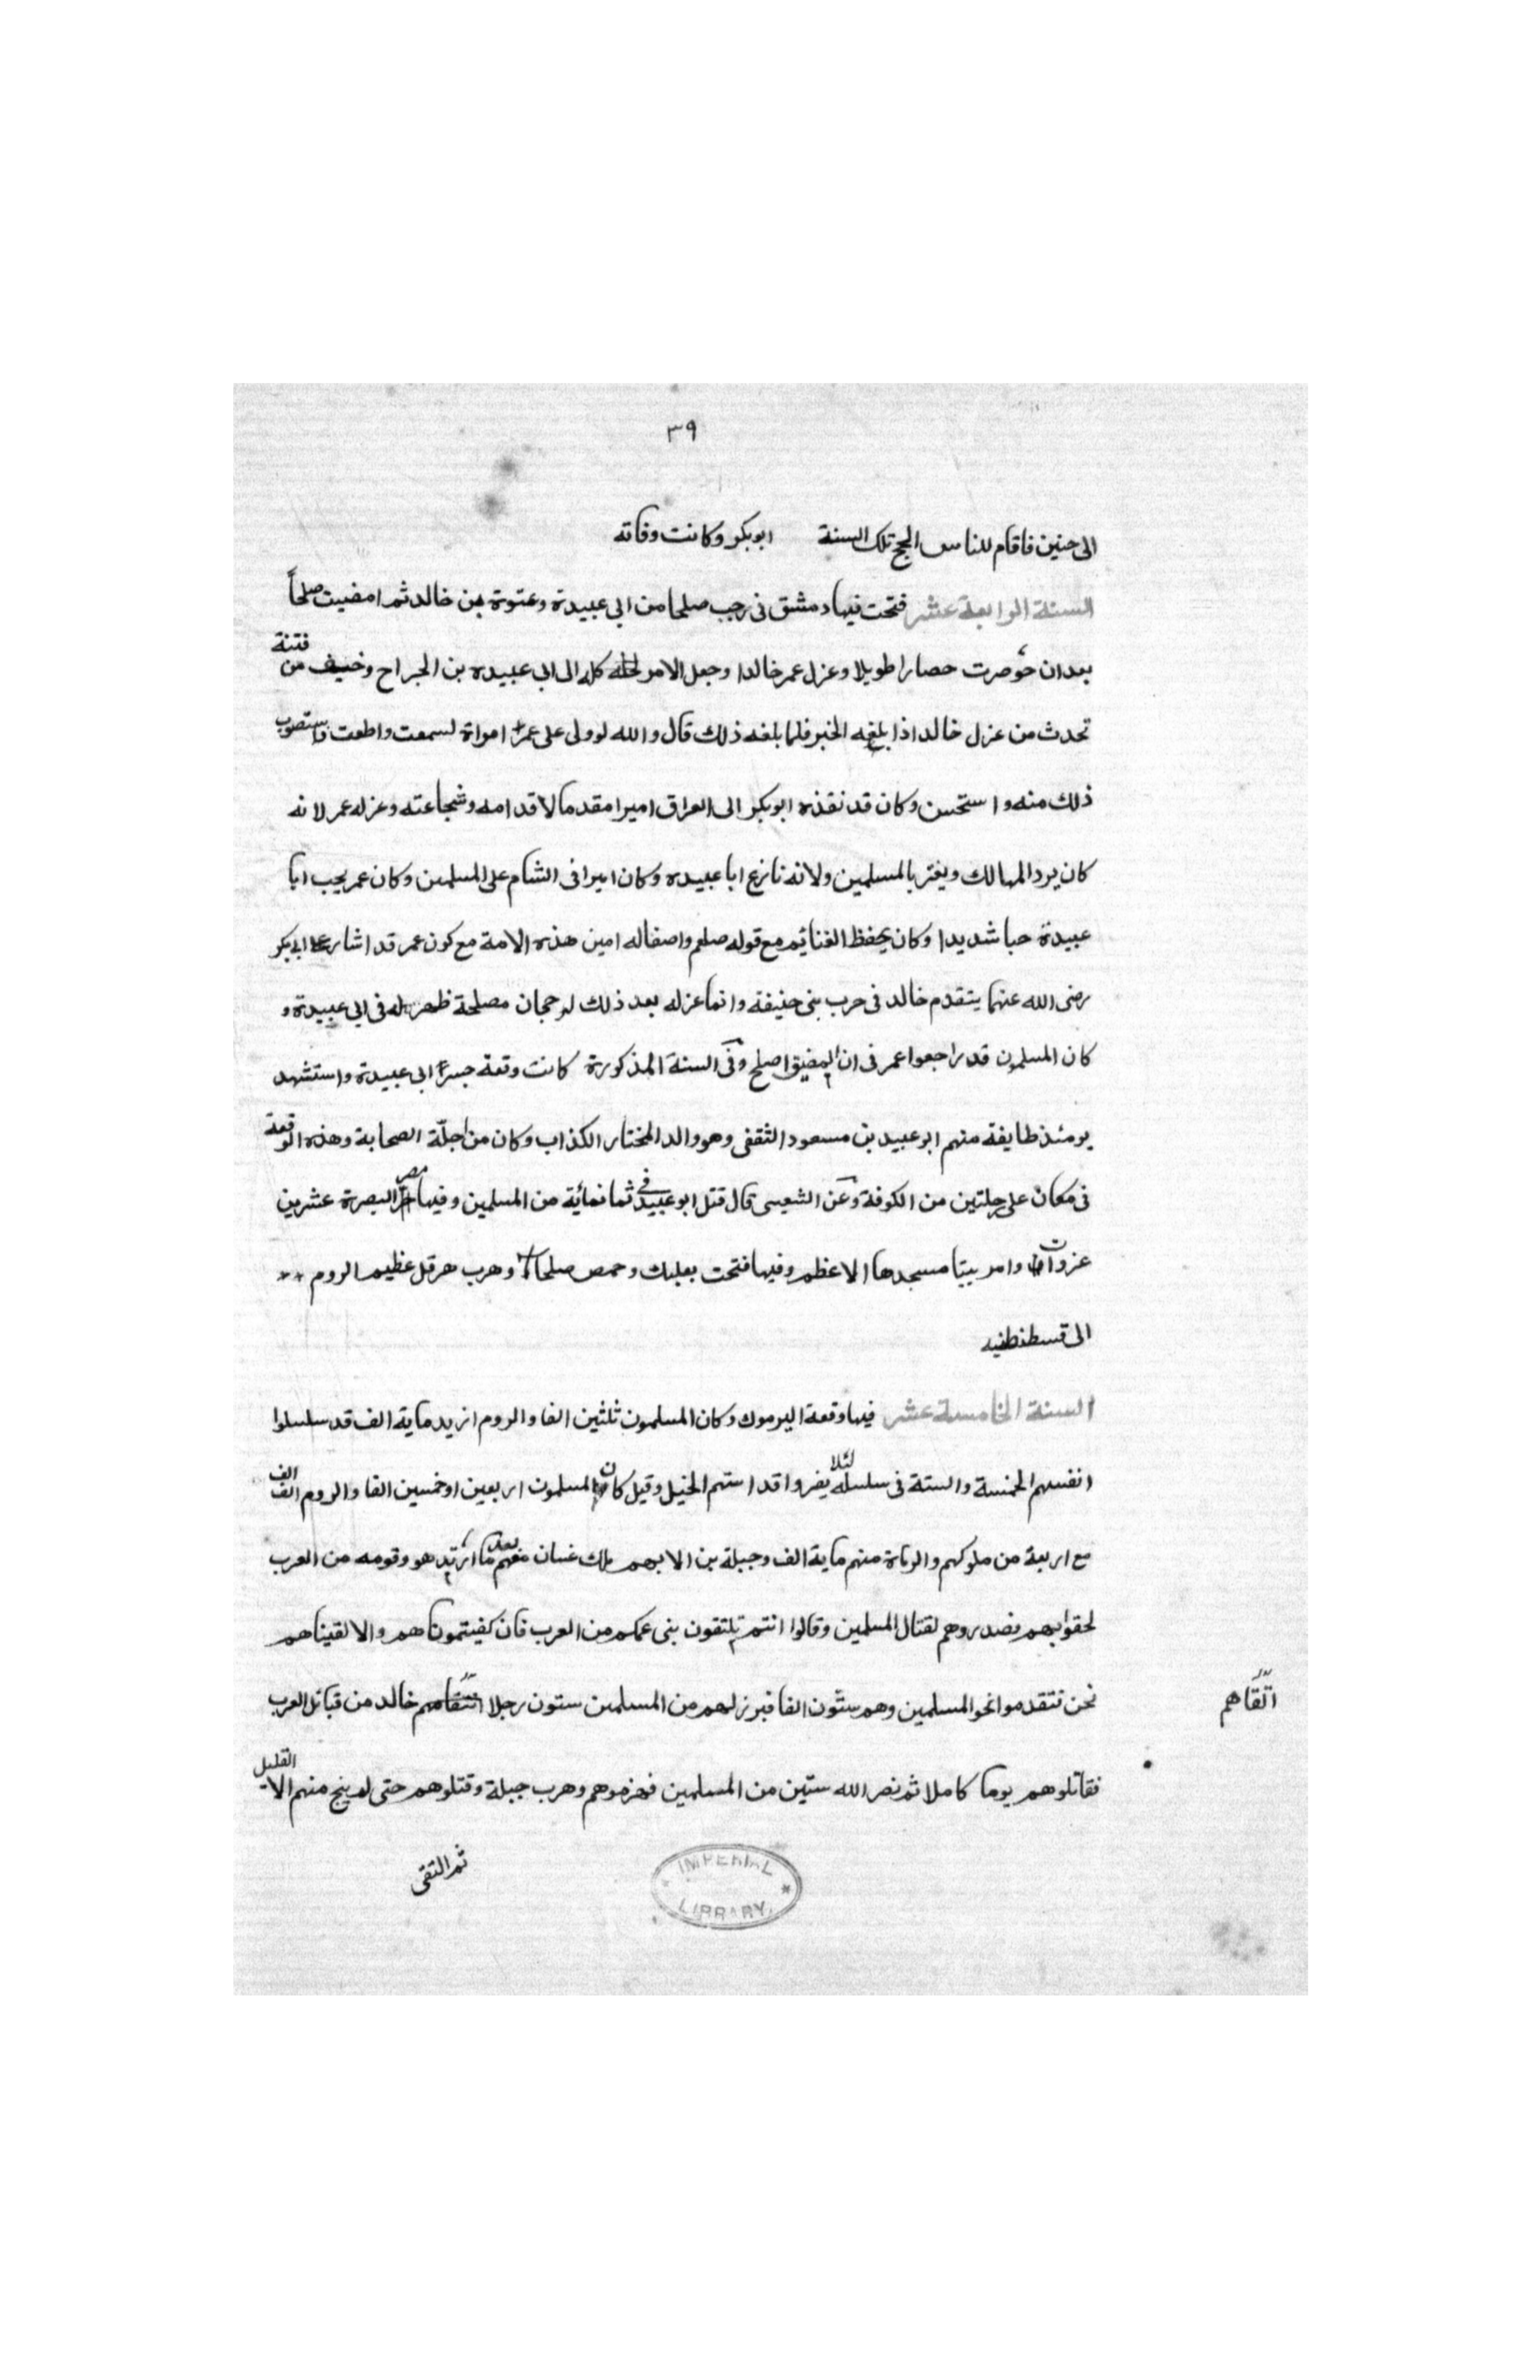 ٣٩
الى حنين فاقام للناس الحج تلك السنة ابوبكر وكانت وفاته
السنة الرابعة عشر فتحت فيها دمشق فى رجب صلحا من ابى عبيدة وعنوة من خالد ثم امضيت صلحاً
بعد ان حوصرت حصارا طويلا وعزل عمر خالدا وجعل الامر كله الى ابى عبيده بن الجراح وخيف من فتنة
تحدث من عزل خالد اذا بلغه الخبر فلما بلغه ذلك قال والله لو ولى على عمر امراة لسمعت واطعت فاستصوب
ذلك منه واستحسن وكان قد نقذه ابوبكر الى العراق اميرا مقدما لاقدامه وشجاعته وعزله عمر لانه
كان يرد المهالك ويغتر بالمسلمين ولانه نازع ابا عبيده وكان اميرا فى الشام على المسلمين وكان عمر يحب ابا
عبيدة حبا شديدا وكان يحفظ الغنائم مع قوله صلعم امين هذه الامة مع كون عمر قد اشار على ابى بكر
رضى الله عنهما يتقدم خالد فى حرب بنى حنيفة وانما عزله بعد ذلك لرجحان مصلحة ظهر له فى ابى عبيدة و
كان المسلمون قد راجعوا عمر فى ان اصلح وفى السنة المذكورة كانت وقعة جسر ابى عبيدة واستشهد
يومئذ طايفة منهم ابو عبيد بن مسعود الثقفى وهو والد المختار الكذاب وكان من اجلّة الصحابة وهذه الوقعة
فى مكان على رحلتين من الكوفة وعن الشعبى قال قتل ابو عبيد فى ثمانمائة من المسلمين وفيها مصر البصرة عشر بن
غزوان وامر ببنا مسجدها الاعظم وفيها فتحت بعلبك وحمص صلحا وهرب هرقل عظيم الروم
الى قسطنطنيه
السنة الخامسة عشر فيها وقعة اليرموك وكان المسلمون ثلثين الفا والروم ازيد ماية الف قد سلسلوا
انفسهم الخمسة والستة فى سلسله لئلا يفروا قد استهم الخيل وقيل كان المسلمون اربعين او خمسين الفا والروم الف الف
مع اربعة من ملوكهم والرماة منهم ماية الف وجبلة بن الابهم ملك غسان معهم بعد ما ارتد هو وقومه من العرب
لحقوا بهم فصدروهم لقتال المسلمين وقالوا انتم تلتقون بنى عمكم من العرب فان كفيتموناهم والا لقيناهم
نحن فتقدموا نحو المسلمين وهم ستّون الفا فبرز لهم من المسلمين ستون رجلا خالد من قبائل العرب
اتّقاهم
فقاتلوهم يوما كاملا ثم نصر الله ستّين من المسلمين فهزموهم وهرب جبلة وقتلوهم حتى لم ينج منهم الا القليل
ثم التقى
IMPERIAL
LIBRARY